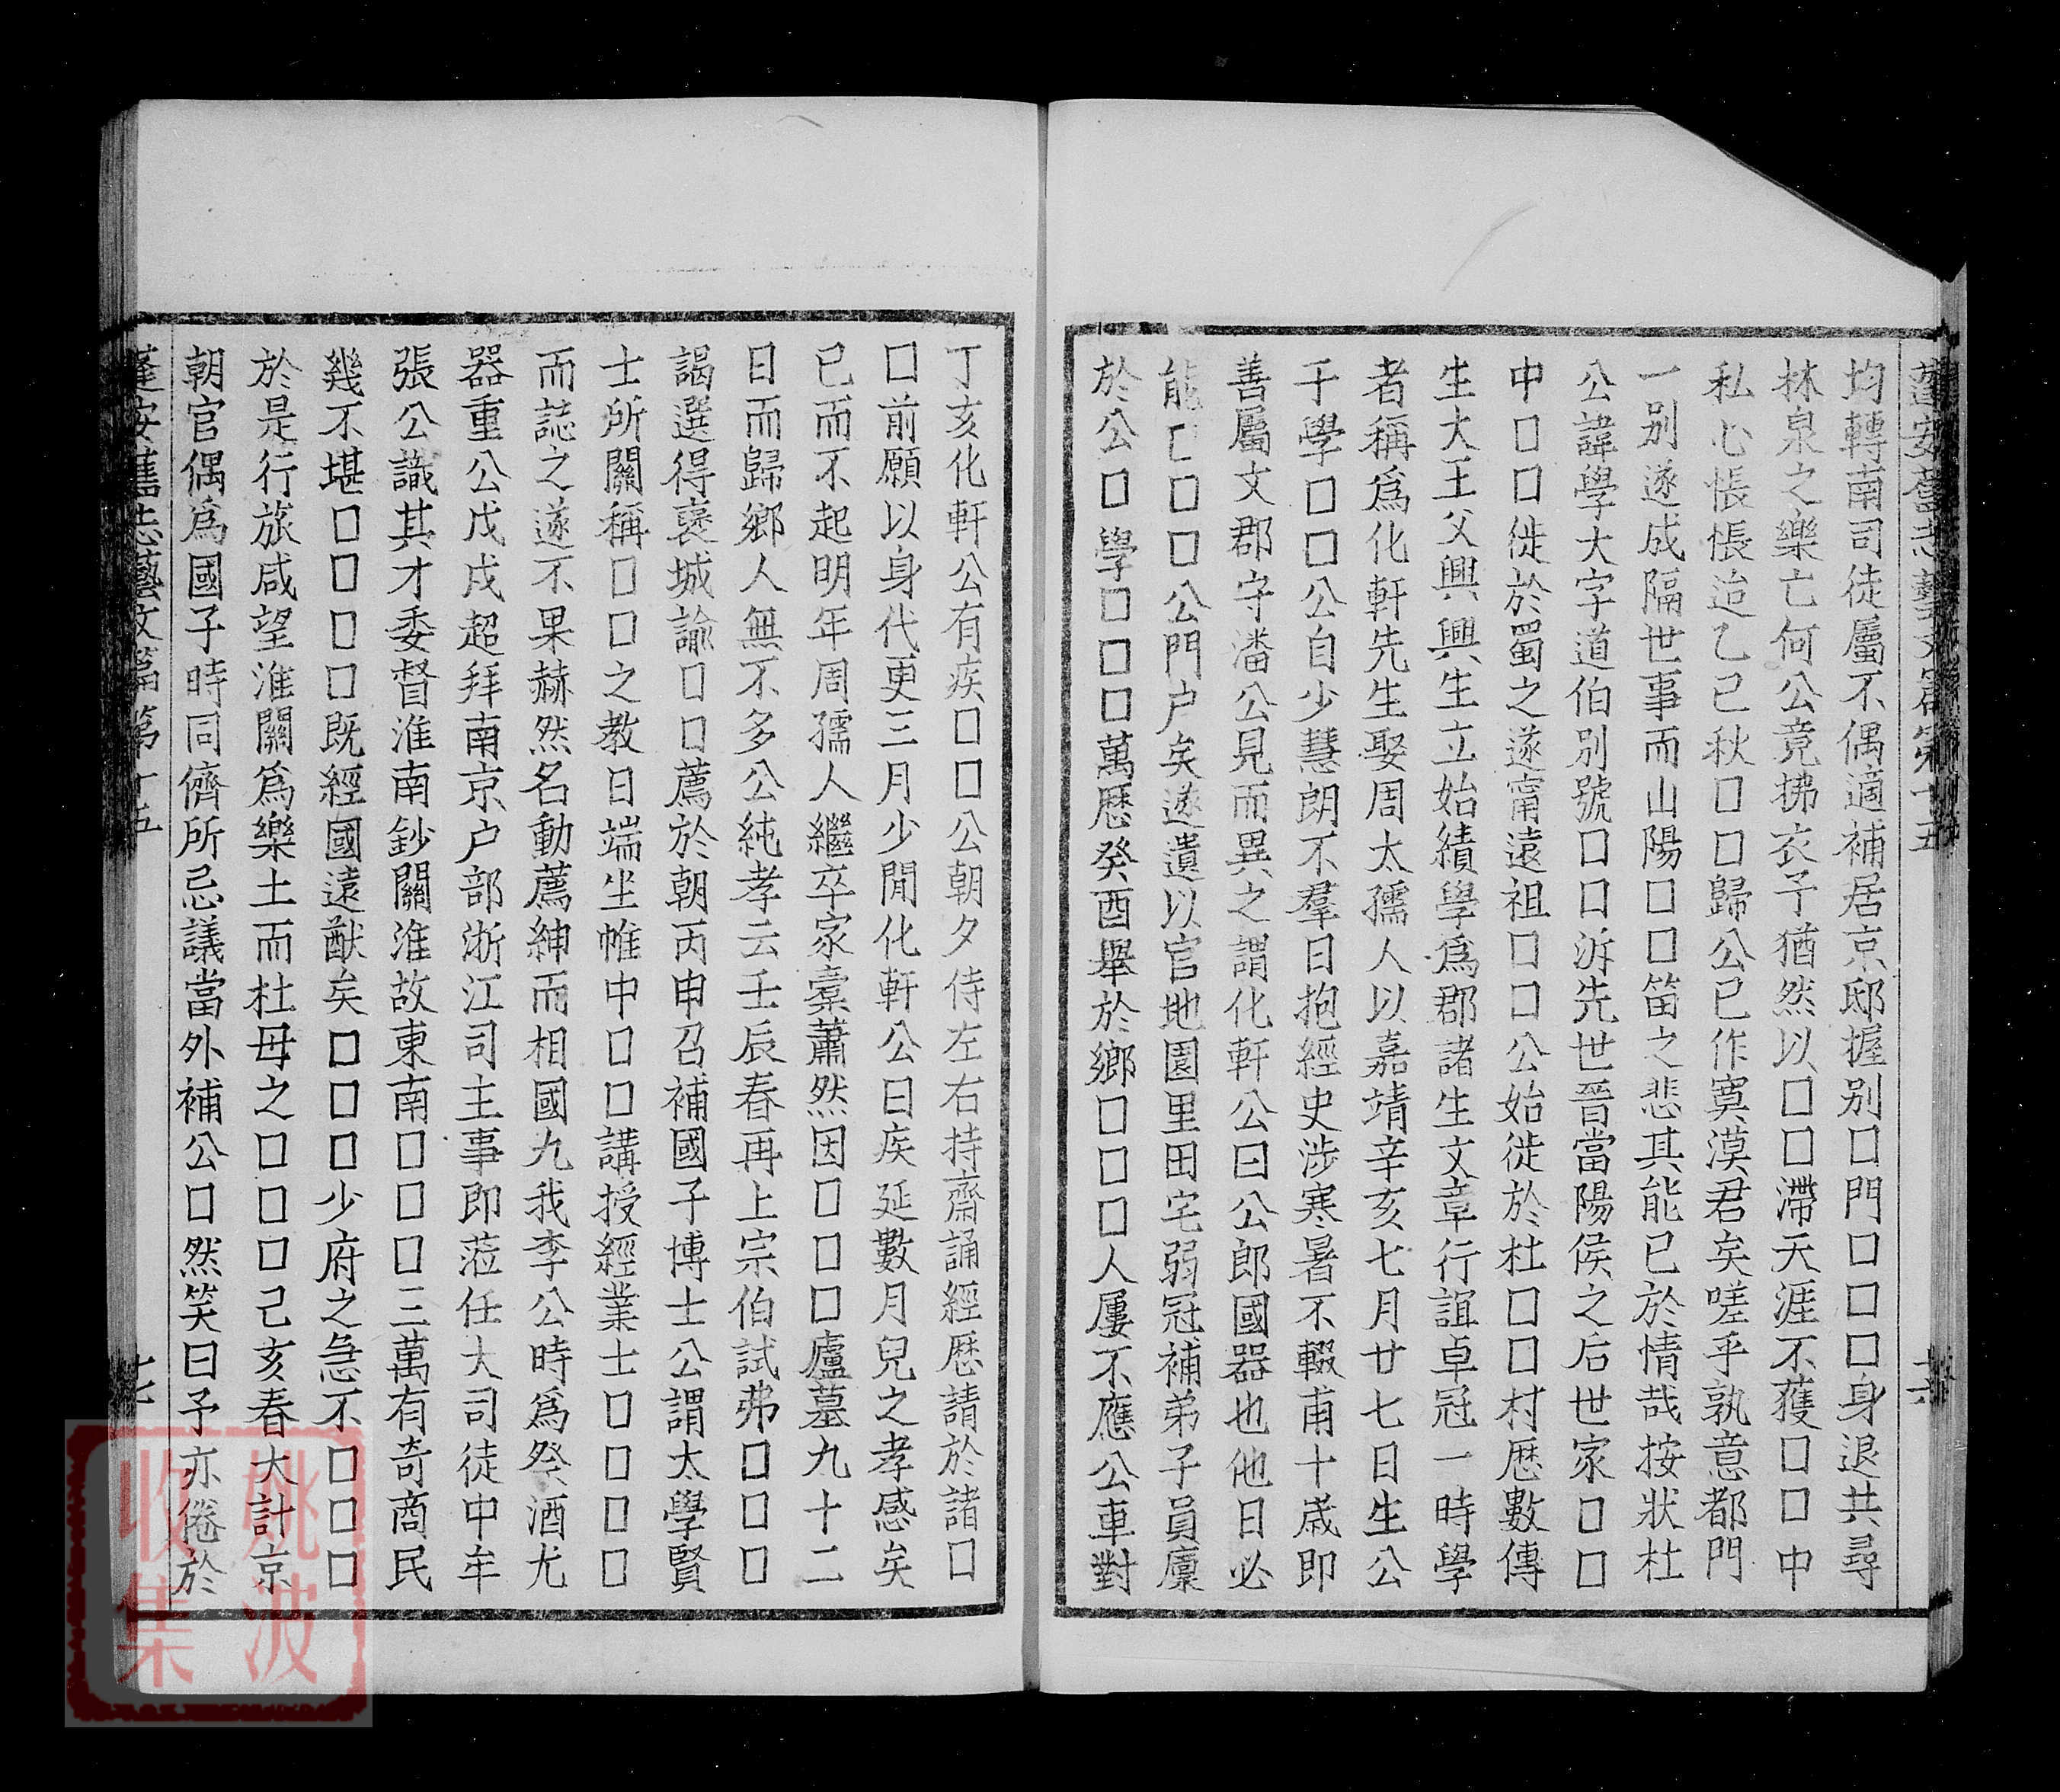 蓬安舊志藝文篇第十五
十六
均轉南司徒屬不偶適補居京邸握别口門口口口身退共尋
林泉之樂亡何公竟拂衣予猶然以口口滯天涯不獲口口中
私心悵悵迨乙已秋口口歸公已作寞漠君矣嗟乎孰意都門
一别遂成隔世事而山陽口口笛之悲其能已於情哉按狀杜
公諱學大字道伯别號口口泝先世晉當陽侯之后世家口口
中口口徙於蜀之遂甯遠祖口口公始徙於杜口口村歷數傳
生大王父興興生立始績學爲郡諸生文章行誼卓冠一時學
者稱爲化軒先生娶周太孺人以嘉靖辛亥七月廿七日生公
于學口口公自少慧朗不羣日抱經史涉寒暑不輟甫十歲即
善屬文郡守潘公見而異之謂化軒公曰公郎國器也他日必
能口口口公門户矣遂遺以官地園里田宅弱冠補弟子員廩
於公口學口口口萬歷癸酉舉於鄉口口口人屢不應公車對
丁亥化軒公有疾口口公朝夕侍左右持齋誦經歷請於諸口
口前願以身代更三月少閒化軒公曰疾延數月兒之孝感矣
已而不起明年周孺人繼卒家槖蕭然因口口口廬墓九十二
日而歸鄉人無不多公純孝云壬辰春再上宗伯試弗口口口
謁選得襃城諭口口薦於朝丙申召補國子博士公謂太學賢
士所關稱口口之教日端坐帷中口口講授經業士口口口口
而誌之遂不果赫然名動薦紳而相國九我李公時爲祭酒尤
器重公戊戌超拜南京户部浙江司主事即蒞任大司徒中牟
張公識其才委督淮南鈔關淮故東南口口口三萬有奇商民
幾不堪口口口口既經國遠猷矣口口口少府之急不口口口
於是行旅咸望淮關爲樂土而杜母之口口口己亥春大計京
朝官偶爲國子時同儕所忌議當外補公口然笑曰予亦倦於
蓬安舊志藝文篇第十五
十七
姚波
收集